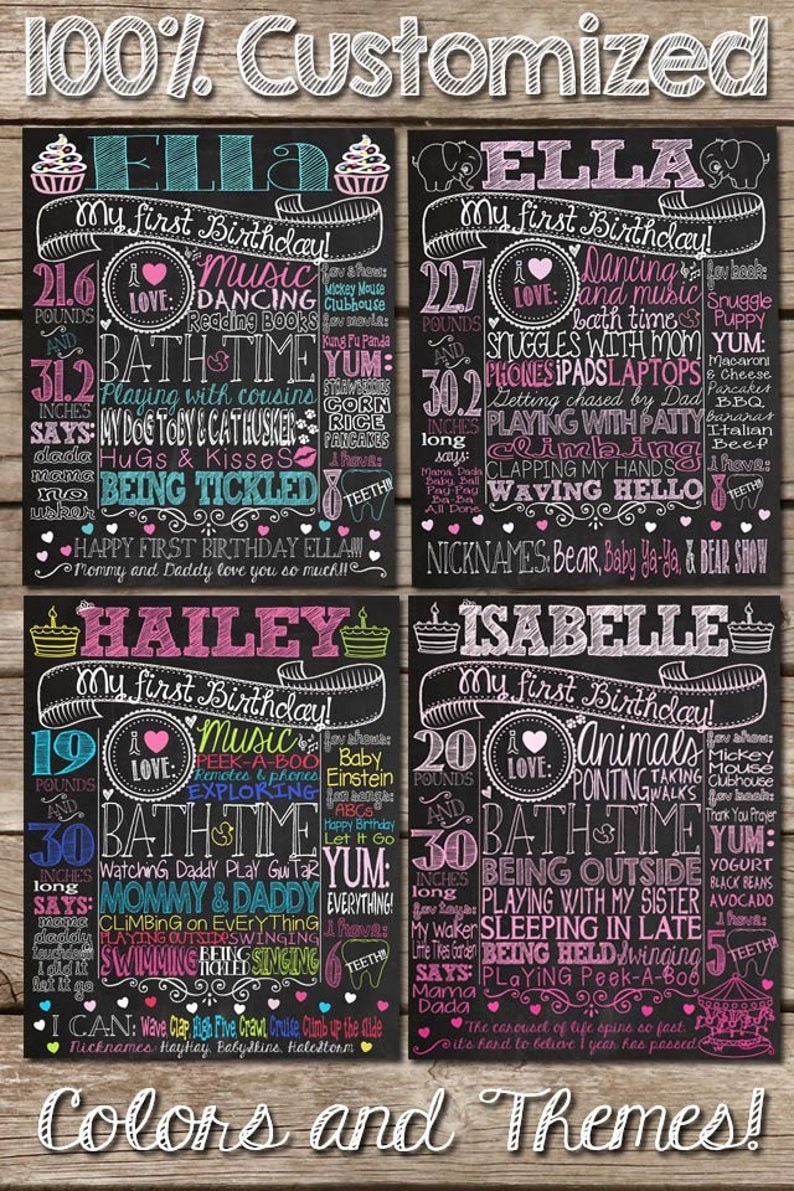 100% Customized
ELLa
My first Birthday!
21.6
POUNDS
AND
31.2
INCHES
SAYS:
dada
mama
no
usker
i
LOVE:
Music
DANCING
Reading Books
BATH TIME
Playing with cousins
MY DOG TOBY & CAT HUSKER
HuGs & KisseS
BEING TICKLED
fav show:
Mickey Mouse
Clubhouse
fav movie:
Kung Fu Panda
YUM:
STRAWBERRIES
CORN
RICE
PANCAKES
i have:
8
TEETH!!
HAPPY FIRST BIRTHDAY ELLA!!!!
Mommy and Daddy love you so much!!
ELLA
My first Birthday!
22.7
POUNDS
AND
30.2
INCHES
long
says:
Mama, Dada
Baby, Ball
Pay-Pay
Ba-Ba
All Done
i
LOVE:
Dancing
and music
bath time
SNUGGLES WITH MOM
PHONES iPADS LAPTOPS
Getting chased by Dad
PLAYING WITH PATTY
climbing
CLAPPING MY HANDS
WAVING HELLO
fav book:
Snuggle
Puppy
YUM:
Macaroni
& Cheese
Pancakes
BBQ
Bananas
Italian
Beef
i have:
8
TEETH!!
NICKNAMES: Bear, Baby Ya-Ya, & BEAR SHOW
HAILEY
My first Birthday!
19
POUNDS
AND
30
INCHES
long
SAYS:
mama
daddy
touchdown
i did it
let it go
i
LOVE:
Music
PEEK-A-BOO
Remotes & phones
EXPLORING
BATH TIME
Watching Daddy Play Guitar
MOMMY & DADDY
CLiMBiNG on EvERyTHiNG
PLAYING OUTSIDE SWINGING
SWIMMING BEING TICKLED SINGING
fav show:
Baby
Einstein
fav songs:
ABCs
Happy Birthday
Let It Go
YUM:
EVERYTHING!
i have:
6
TEETH!!
I CAN: Wave, Clap, High Five, Crawl, Cruise, Climb up the slide
Nicknames: HayHay, BabySkins, HaleStorm
ISABELLE
My first Birthday!
20
POUNDS
AND
30
INCHES
long
fav toys:
My Walker
Little Tikes Garden
SAYS:
Mama
Dada
i
LOVE:
Animals
POINTING TAKING WALKS
BATH TIME
BEING OUTSIDE
PLAYING WITH MY SISTER
SLEEPING IN LATE
BEING HELD Swinging
PLAYING Peek-A-Boo
fav show:
Mickey
Mouse
Clubhouse
fav book:
Thank You Prayer
YUM:
YOGURT
BLACK BEANS
AVOCADO
i have:
5
TEETH!!
The carousel of life spins so fast,
it's hard to believe 1 year has passed
Colors and Themes!